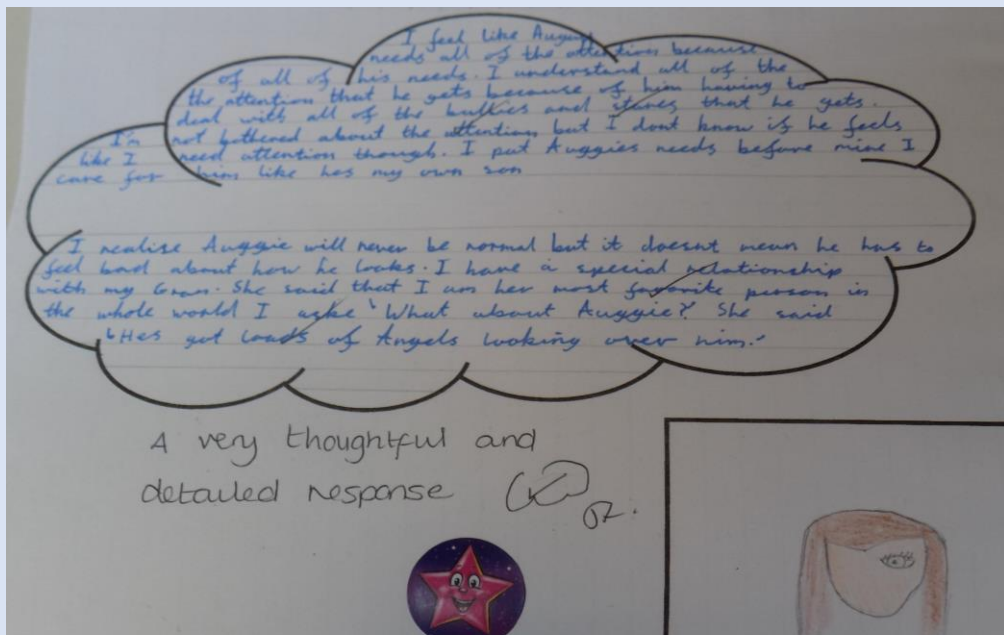 I feel like August
needs all of the attention because
of all of his needs. I understand all of the
the attention that he gets because of him having to
deal with all of the bullies and stares that he gets.
I'm not bothered about the attention but I dont know if he feels
like I need attention though. I put Auggies needs before mine I
care for him like hes my own son
I realise Auggie will never be normal but it doesnt mean he has to
feel bad about how he looks. I have a special relationship
with my Gran. She said that I am her most favorite person in
the whole world I aske 'What about Auggie?' She said
'Hes got loads of Angels looking over him.'
A very thoughtful and
detailed response